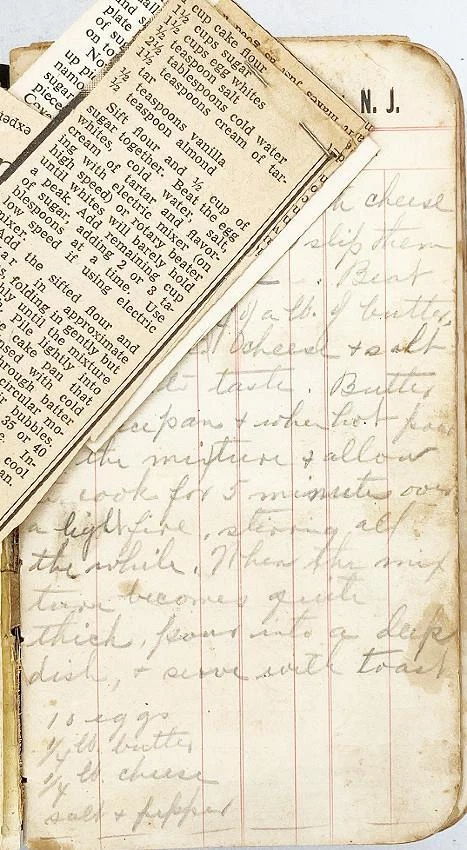 cup cake flour
1½ cups sugar
1½ cups egg whites
teaspoon salt
tablespoons cold water
1½ teaspoons cream of tar-
tar
teaspoons vanilla
½ teaspoon almond
Sift flour and ½ cup of
sugar together. Beat the egg
whites, cold water, salt,
cream of tartar and flavor-
ing with electric mixer (on
high speed) or rotary beater
until whites will barely hold
a peak. Add remaining cup
of sugar, adding 2 or 3 ta-
blespoons at a time. Use
low speed if using electric
mixer.
Add the sifted flour and
in approximate
folding in gently but
until the mixture
Pile lightly into
cake pan that
with cold
through batter
circular mo-
bubbles.
35 or 40
In-
cool
an.
plate
of su
on to
up pl
piece
N. J.
cheese
slip them
Beat
a lb. of butter
cheese + salt
to taste. Butter
pan + when hot pour
the mixture + allow
cook for 5 minutes over
a light fire, stirring all
the while. When the mix
ture becomes quite
thick, pour into a deep
dish, + serve with toast
10 eggs
1/4 lb. butter
1/4 lb. cheese
salt + pepper